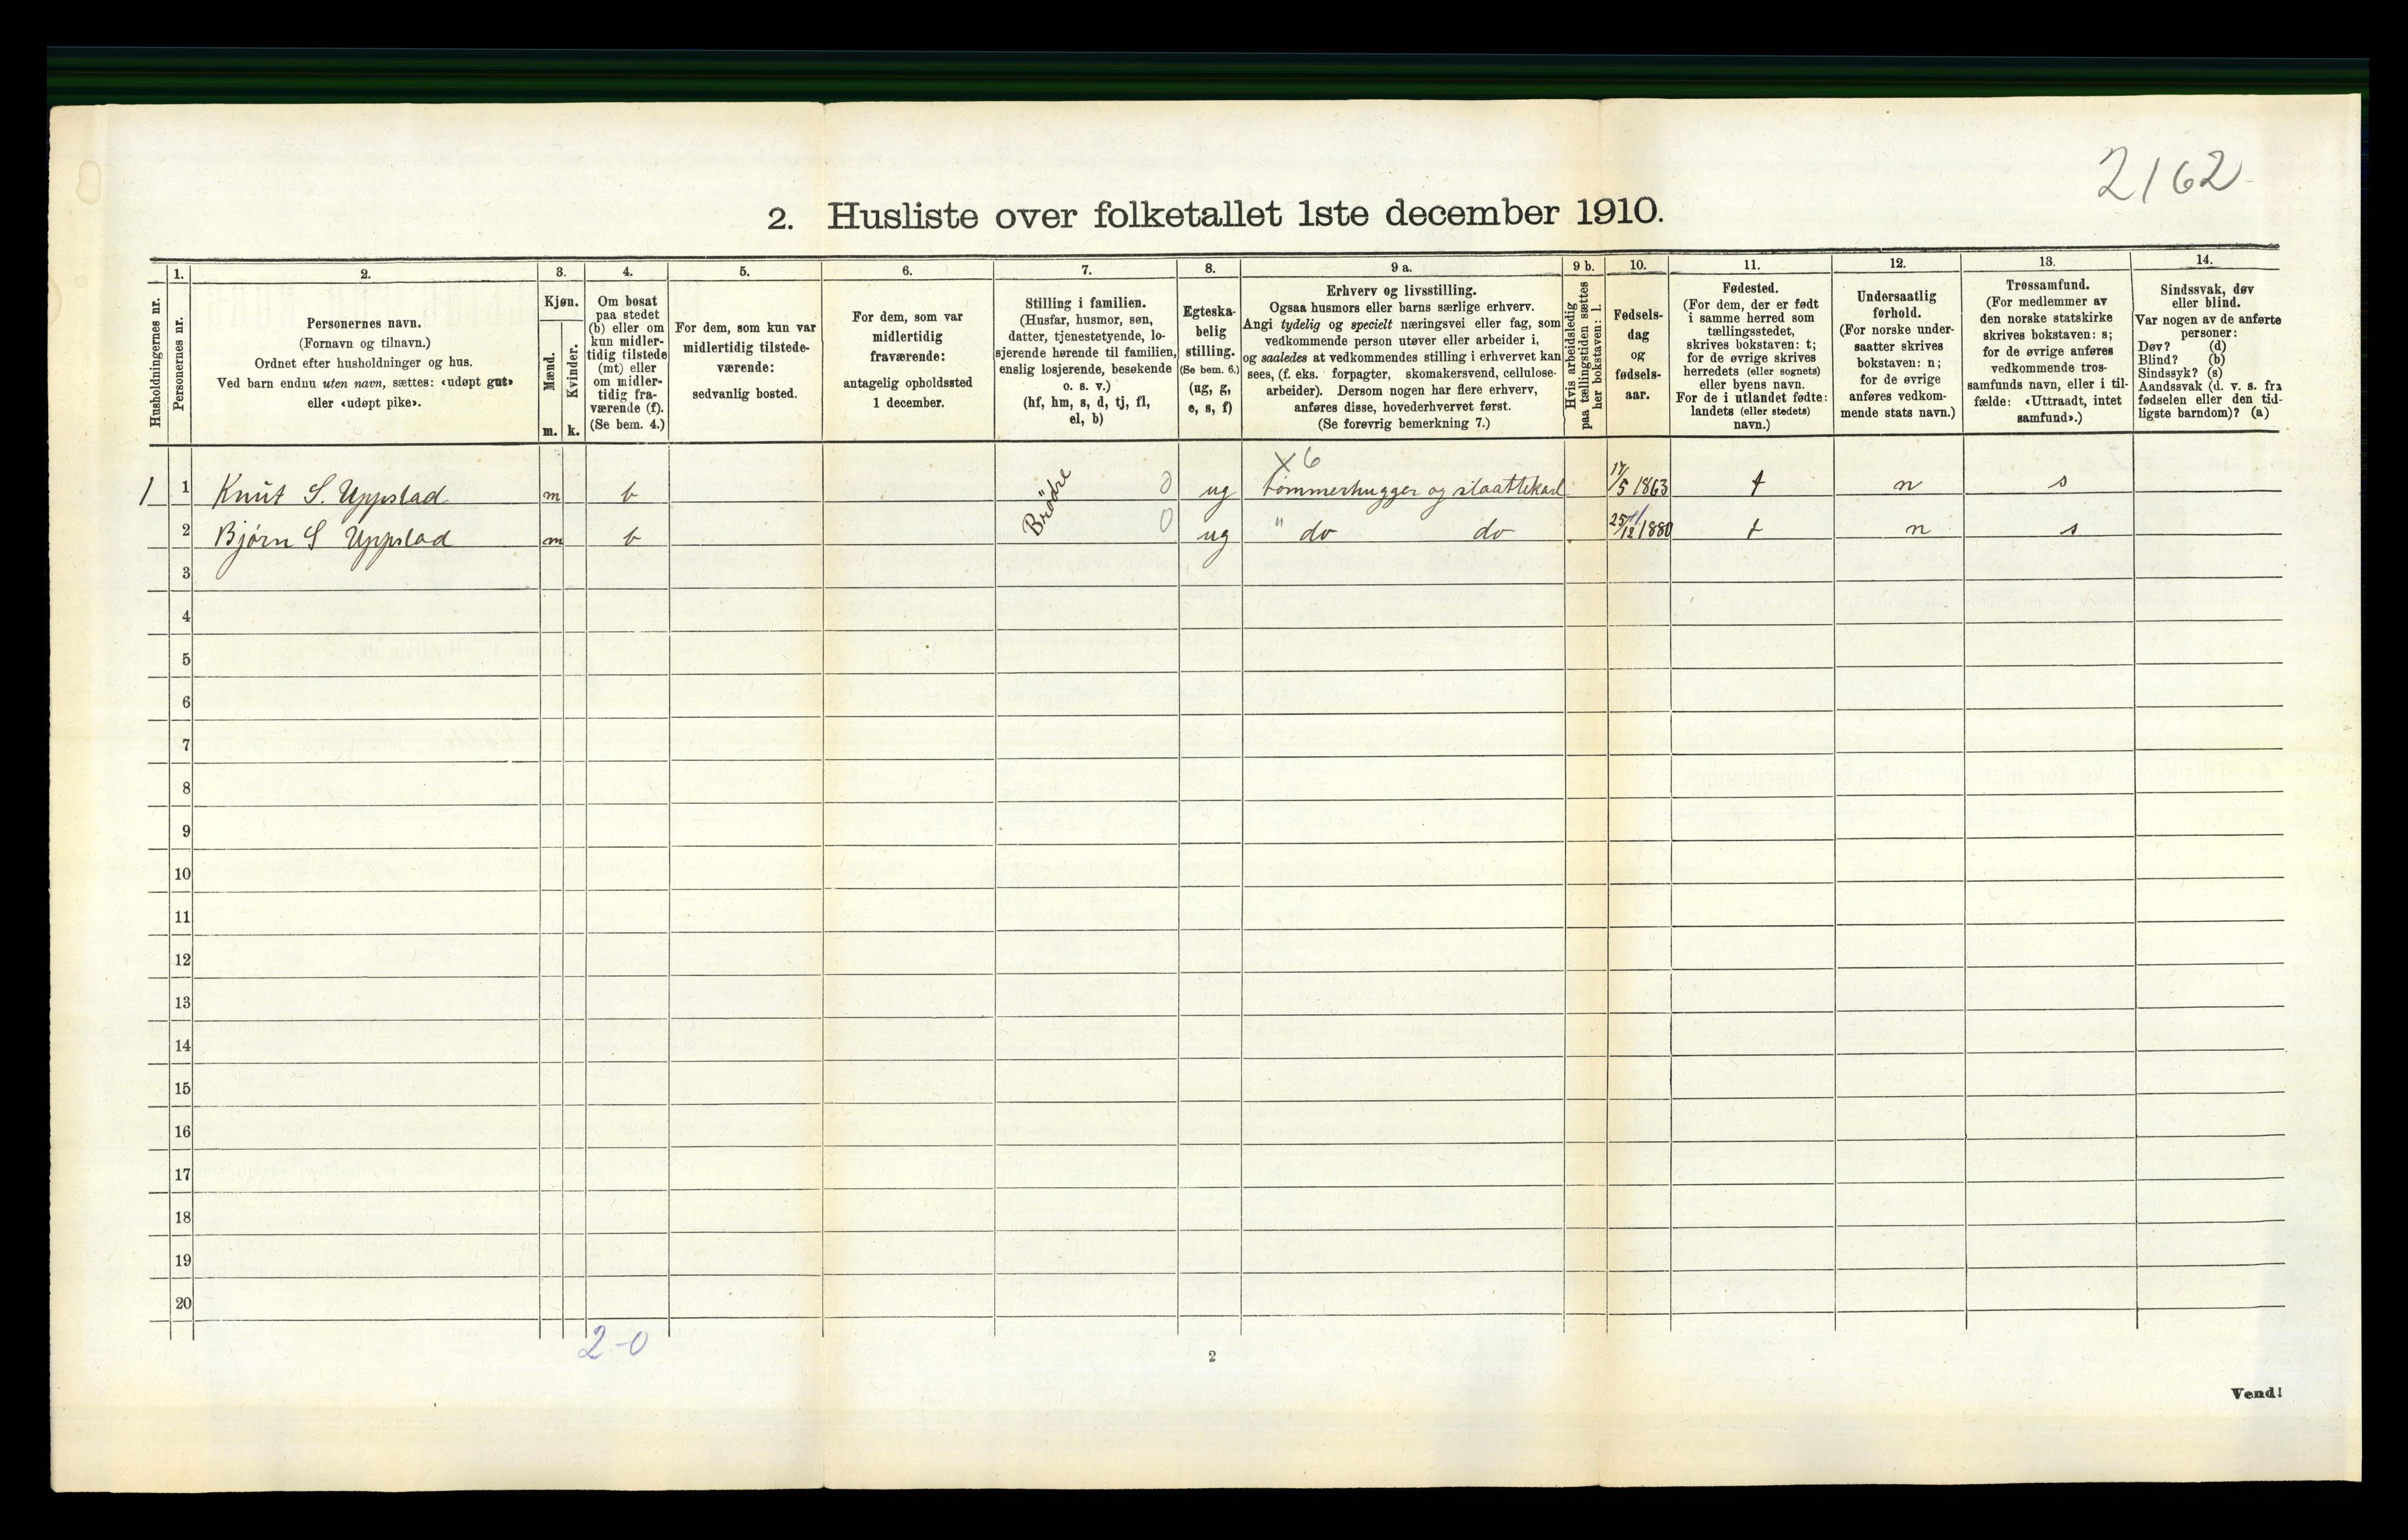 2162
2. Husliste over folketallet 1ste december 1910.
Husholdningernes nr.
1.
Personernes nr.
2.
Personernes navn.
(Fornavn og tilnavn.)
Ordnet efter husholdninger og hus.
Ved barn endnu uten navn, sættes: «udøpt gut»
eller «udøpt pike».
3.
Kjøn.
Mænd.
Kvinder.
m. k.
4.
Om bosat
paa stedet
(b) eller om
kun midler-
tidig tilstede
(mt) eller
om midler-
tidig fra-
værende (f).
(Se bem. 4.)
5.
For dem, som kun var
midlertidig tilstede-
værende:
sedvanlig bosted.
6.
For dem, som var
midlertidig
fraværende:
antagelig opholdssted
1 december.
7.
Stilling i familien.
(Husfar, husmor, søn,
datter, tjenestetyende, lo-
sjerende hørende til familien,
enslig losjerende, besøkende
o. s. v.)
(hf, hm, s, d, tj, fl,
el, b)
8.
Egteska-
belig
stilling.
(Se bem. 6.)
(ug, g,
e, s, f)
9 a.
Erhverv og livsstilling.
Ogsaa husmors eller barns særlige erhverv.
Angi tydelig og specielt næringsvei eller fag, som
vedkommende person utøver eller arbeider i,
og saaledes at vedkommendes stilling i erhvervet kan
sees, (f. eks. forpagter, skomakersvend, cellulose-
arbeider). Dersom nogen har flere erhverv,
anføres disse, hovederhvervet først.
(Se forøvrig bemerkning 7.)
9 b.
Hvis arbeidsledig
paa tællingstiden sættes
her bokstaven: l.
10.
Fødsels-
dag
og
fødsels-
aar.
11.
Fødested.
(For dem, der er født
i samme herred som
tællingsstedet,
skrives bokstaven: t;
for de øvrige skrives
herredets (eller sognets)
eller byens navn.
For de i utlandet fødte:
landets (eller stedets)
navn.)
12.
Undersaatlig
forhold.
(For norske under-
saatter skrives
bokstaven: n;
for de øvrige
anføres vedkom-
mende stats navn.)
13.
Trossamfund.
(For medlemmer av
den norske statskirke
skrives bokstaven: s;
for de øvrige anføres
vedkommende tros-
samfunds navn, eller i til-
fælde: «Uttraadt, intet
samfund».)
14.
Sindssvak, døv
eller blind.
Var nogen av de anførte
personer:
Døv? (d)
Blind? (b)
Sindssyk? (s)
Aandssvak (d. v. s. fra
fødselen eller den tid-
ligste barndom)? (a)
X 6
1 1 Knut S. Uppstad m b Brödre 0 ug tømmerhugger og slaattekarl 17/5 1863 t n s
2 Bjørn S Uppstad m b 0 ug " do do 25/12 1880 t n s
3
4
5
6
7
8
9
10
11
12
13
14
15
16
17
18
19
20
2-0
2
Vend!